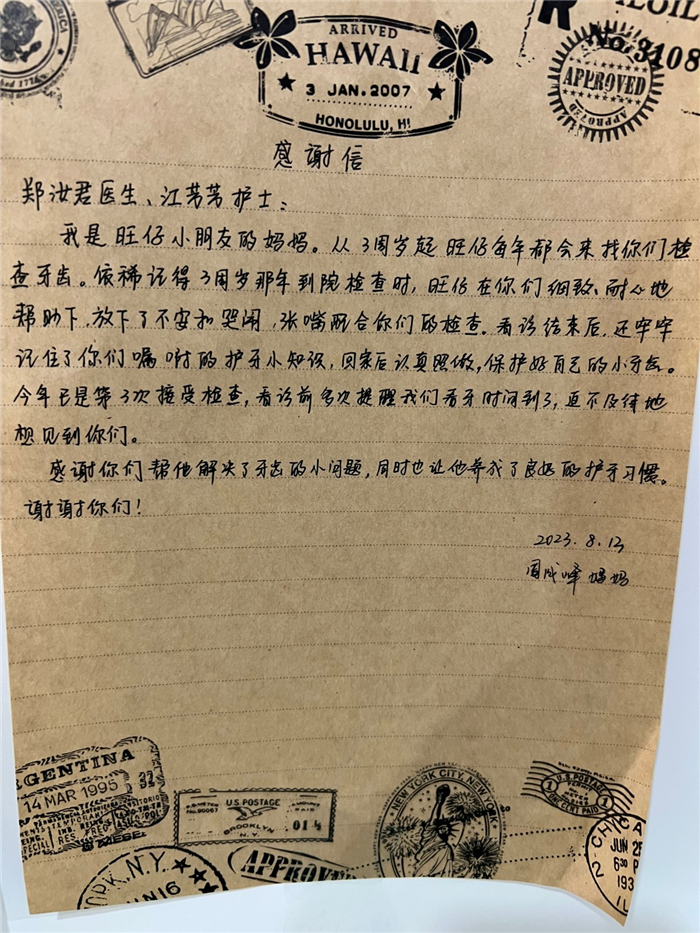 ARRIVED
HAWAII
3 JAN.2007
HONOLULU, HI
No. 3108
APPROVED
APPROVED
感谢信
郑汝君医生、江芳芳护士：
我是旺仔小朋友的妈妈。从3周岁起旺仔每年都会来找你们检
查牙齿。依稀记得3周岁那年到院检查时，旺仔在你们细致、耐心地
帮助下，放下了不安和哭闹，张嘴配合你们的检查。看诊结束后，还牢牢
记住了你们嘱咐的护牙小知识，回家后认真照做，保护好自己的小牙齿。
今年已是第3次接受检查，看诊前多次提醒我们看牙时间到了，迫不及待地
想见到你们。
感谢你们帮他解决了牙齿的小问题，同时也让他养成了良好的护牙习惯。
谢谢你们！
2023.8.13
妈妈
RGENTINA
14 MAR 1995
U.S. POSTAGE
BROOKLYN
N.Y.
01 ½
NEW YORK CITY, NEW YORK
U.S. POSTAGE
1
1
ONE CENT PAID
APPROVED
YORK, N.Y.
2-CHICA
JUN 25
630 P
193
IL